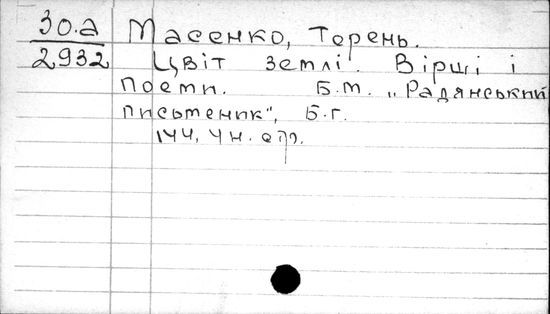 30.а Масенко, Терень.
2932 Цвіт землі. Вірші і
поеми. Б.м. „Радянський
письменник", Б.г.
144, 4 н. стр.